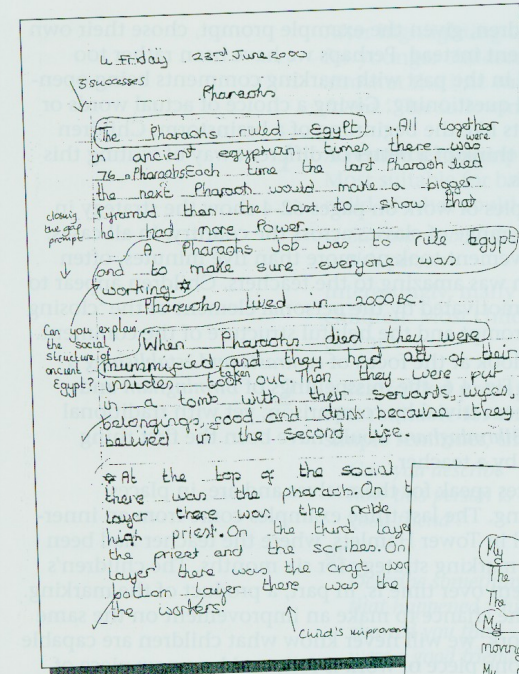 4. Friday 23rd. June 2000
3 successes
Pharaohs
The Pharaohs ruled Egypt. All together
were
ancient egyptian times there was
76 Pharaohs Each time the last Pharaoh died
the next Pharaoh would make a bigger
Pyramid then the last to show that
he had more Power.
closing
the gap
prompt
A Pharaohs Job was to rule Egypt
and to make sure everyone was
working. ☆
Pharaohs lived in 2000 BC.
Can you explain
the social
structure of
ancient
Egypt?
When Pharaohs died they were
mummified and they had all of their
taken
insides took out. Then they were put
in a tomb with their servants, wives,
belongings, food and drink because they
belived in the second life.
☆ At the top of the social
there was the pharaoh. On t
layer there was the noble
high priest. On the third laye
the priest and the scribes. On
layer there was the craft wo
bottom layer there was the
the workers.
Child's improvem
My
The
The
My
moving
My